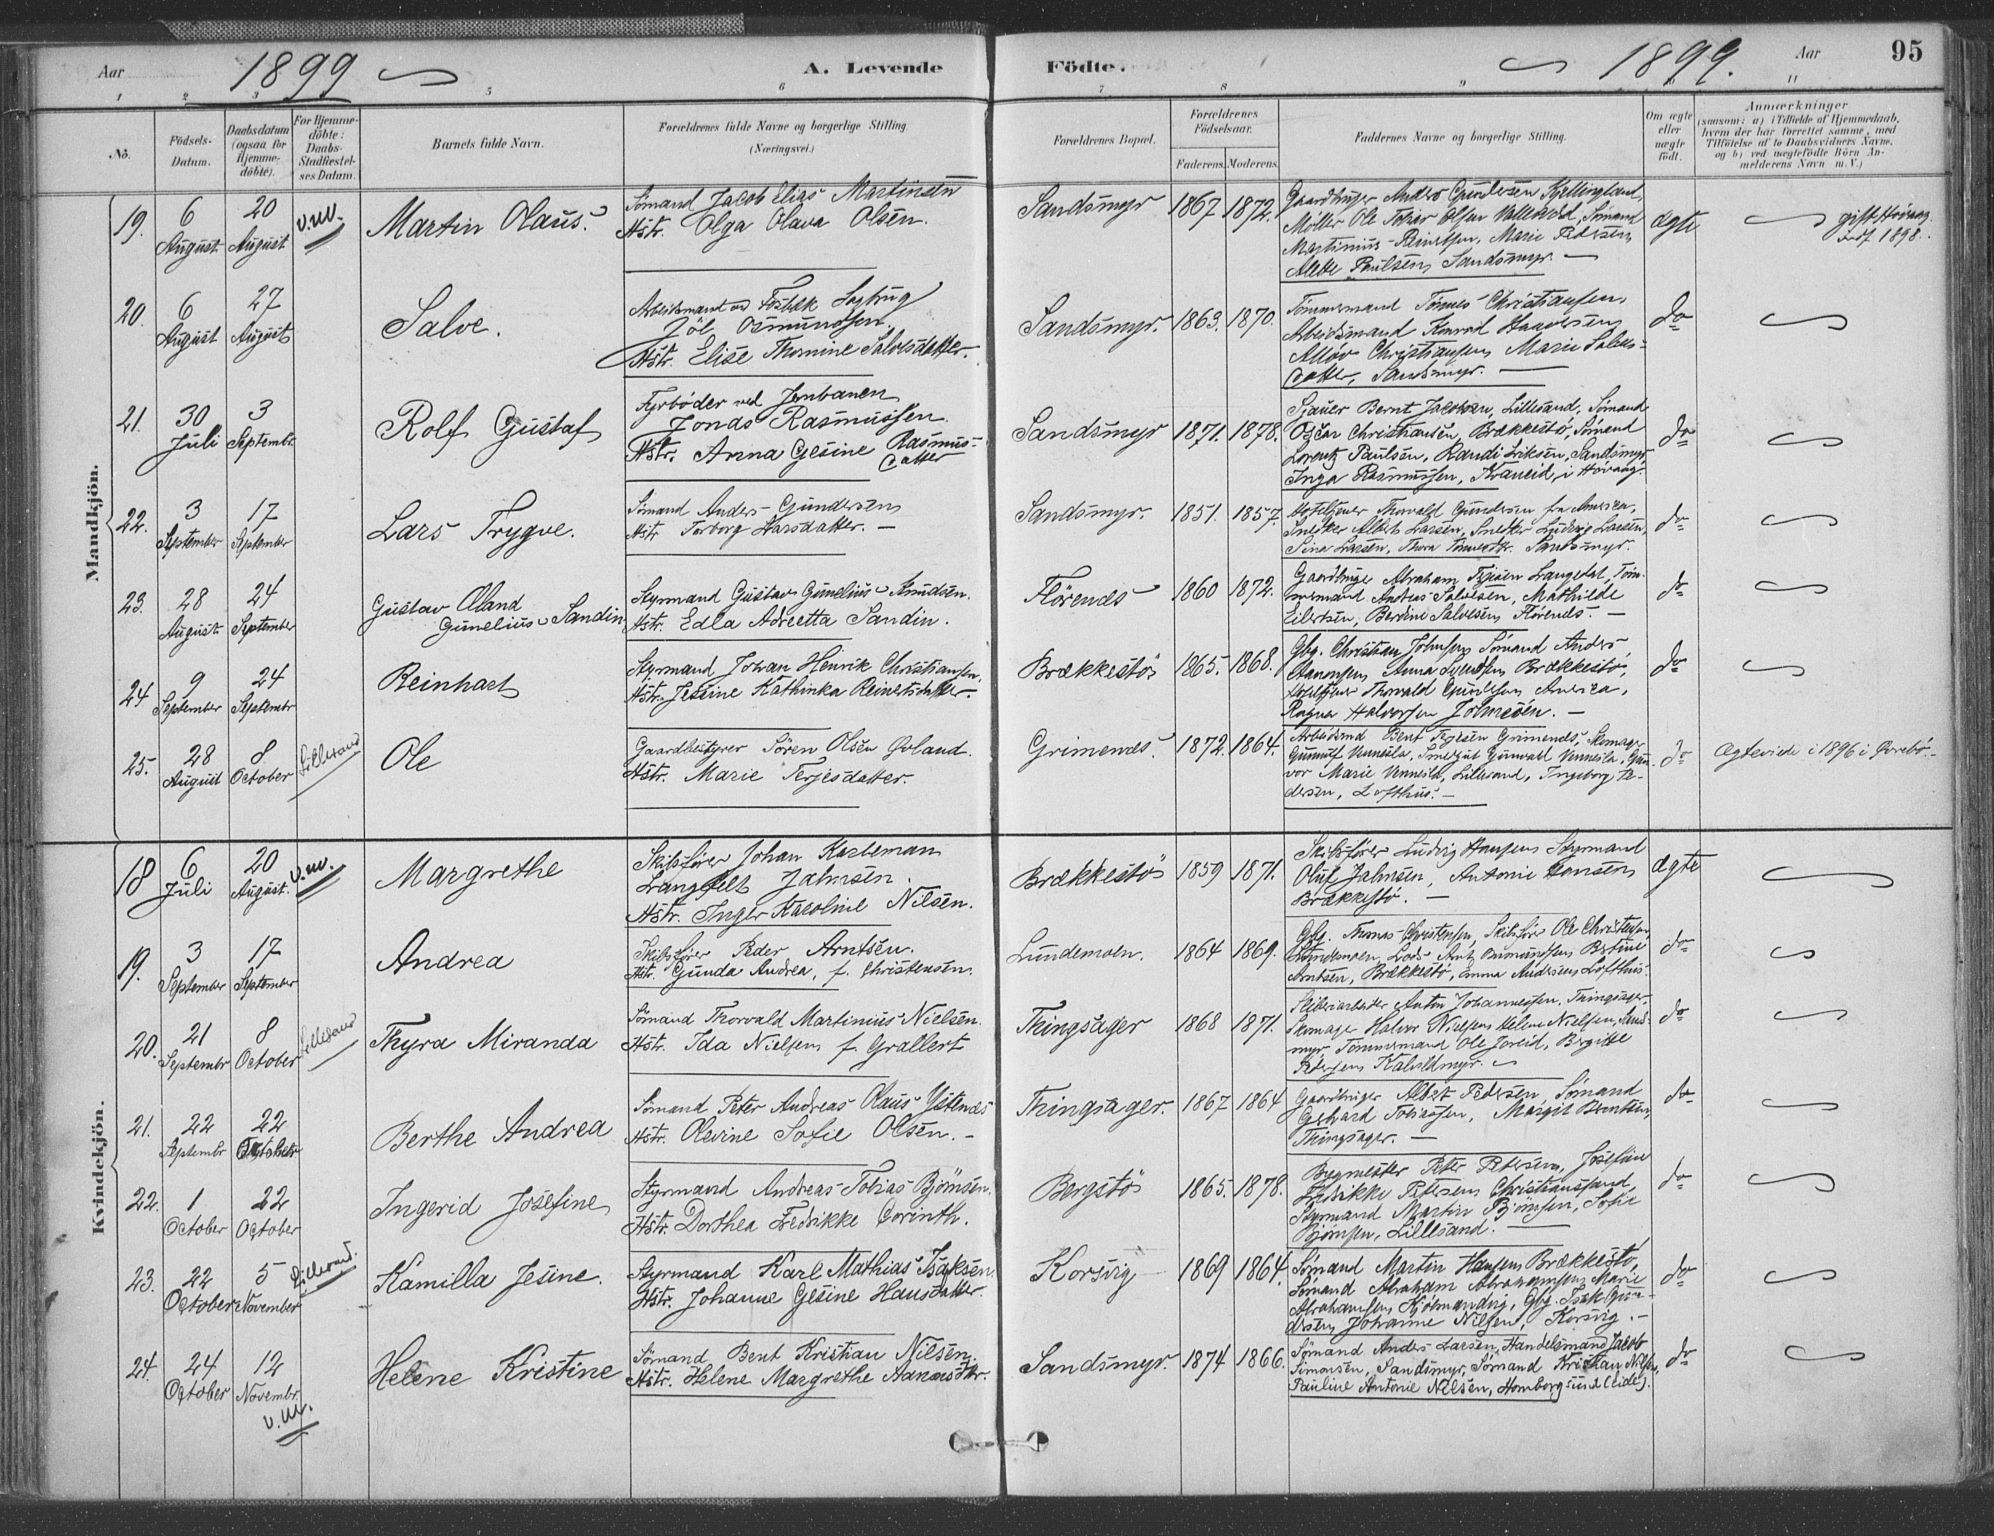 Aar 1899 A. Levende Födte. 1899. Aar 95
1 2 3 5 6 7 8 9 11
No.
Födsels-Datum.
Daabsdatum (ogsaa for Hjemme-döbte).
For Hjemme-döbte: Daabs-Stadfæstel-ses Datum.
Barnets fulde Navn.
Forældrenes fulde Navne og borgerlige Stilling. (Næringsvei.)
Forældrenes Bopæl.
Forældrenes Födselsaar.
Faderens. Moderens.
Faddernes Navne og borgerlige Stilling.
Om ægte eller uægte födt.
Anmærkninger
(saasom: a) i Tilfælde af Hjemmedaab,
hvem der har forrettet samme, med
Tilföielse af to Daabsvidners Navne,
og b) ved uægtefödte Börn An-
melderens Navn m. V.)
Mandkjön.
19. 6 August 20 August v.m. Martin Olaus.
Sömand Jacob Elias Martinsen
Hstr. Olga Olava Olsen.
Sandsmyr 1867 1872.
Gaardbruger Anders Gundersen Kjellingland,
Möller Ole Tobias Olsen Vallesværd, Sömand
Martinius Reinertsen, Marie Pedersen,
Alette Paulsen, Sandsmyr. —
ægte
gift Hövaag
1898.
20. 6 August 27 August Salve.
Arbeidsmand ved Fosbæk Sagbrug
Joel Osmundsen
Hstr. Elise Thomine Salvesdatter.
Sandsmyr. 1863. 1870.
Tömmermand Tönnes Christiansen,
Arbeidsmand Konrad Haaversen
Christiansen, Marie Salves-
datter, Sandsmyr. —
do
21. 30 Juli 3 Septembr. Rolf Gustaf
Fyrböder ved Jernbanen
Jonas Rasmussen
Hstr. Anna Gesine Rasmus-
datter
Sandsmyr 1871. 1878.
Sjauer Bernt Jacobsen, Lillesand, Sömand
Oscar Christiansen, Brækkestö, Sömand
Lorentz Paulsen, Randi Eriksen, Sandsmyr,
Inga Rasmussen, i Hövaag.
do
22. 3 September 17 September Lars Trygve.
Sömand Anders Gundersen
Hstr. Torborg Larsdatter. —
Sandsmyr. 1851. 1857.
Hoteleier Thorvald Gundersen fra America,
Snekker Albert Larsen, Snekker Ludvig Larsen,
Sina Larsen, Thora Sandsmyr.
do
23. 28 August 24 September Gustav Æland
Gunelius Sandin
Styrmand Gustav Gunelius Knudsen.
Hstr. Edla Adreetta Sandin.
Flörenæs 1860 1872.
Gaardbruger Abraham Terjesen Langedal, Töm-
mermand Andreas Salvesen, Mathilde
Eilertsen, Berdine Salvesen Flörenæs. —
do
24 9 September 24 Septembr Reinhart
Styrmand Johan Henrik Christiansen.
Hstr. Jesine Kathinka Reinertsdatter.
Brækkestö 1865. 1868.
Gbg. Christian Johnsen, Sömand Anders
Aanonsen, Anna Svendsen Brækkestö,
Hoteleier Thorvald Gundersen America,
Ragna Halvorsen Johnsen. —
do
25. 28 August 8 October Lillesand Ole
Gaardbestyrer Sören Olsen Øvland.
Hstr. Marie Terjesdatter.
Grimenæs. 1872. 1864.
Arbeidsmd Bent Terjesen Grimenæs, Skomager
Gunnulf Vennesla, Smedgut Gunvald Vennesla, Gun-
vor Marie Vennesla, Lillesand, Ingeborg Pe-
dersen, Lofthus. —
do
Ægteviede i 1896 i
Kvindekjön.
18 6 Juli 20 August. v.m. Margrethe
Skibsförer Johan Karleman
Langfelt Jahnsen.
Hstr. Inger Karoline Nilsen.
Brækkestö 1859 1871.
Skibsförer Ludvig Hansen, Styrmand
Oluf Jahnsen, Antonie Hansen
Brækkestö. —
ægte
19. 3 September 17 September Andrea
Skibsförer Peder Arntsen.
Hstr. Gunda Andrea, f. Christensen.
Lundemoen. 1864 1869.
Gbg. Thomas Christensen, Skibsför. Ole Christensen
Lundemoen, Lods Ant. Osmundsen, Bertine
Arntsen, Brækkestö, Emma Andersen Lofthus.
do
20. 21 Septembr 8 October Lillesand Thyra Miranda
Sömand Thorvald Martinius Nielsen.
Hstr. Ida Nielsen f. Grallert
Thingsager 1868 1871.
Anton Johannessen, Thingsager,
Skomager Halvor Nielsen, Helene Nielsen, Sands-
myr, Tömmermand Ole Joreid, Birgitte
Pedersen Kalvildmyr.
do
21. 22 Septembr 22 October Berthe Andrea
Sömand Peter Andreas Olaus Ystenæs
Hstr. Olevine Sofie Olsen. —
Thingsager. 1867 1864
Gaardbruger Albert Pedersen, Sömand
Gerhard Tobiassen, Margit Berntsen,
Thingsager. —
do
22. 1 October 22 October Ingerid Josefine
Styrmand Andreas Tobias Björnsen.
Hstr. Dorthea Fredrikke Corinth.
Bergstö 1865. 1878.
Begmester Peter Petersen, Josefine
Fredrikke Petersen Christianssand,
Styrmand Martin Björnsen, Sofie
Björnsen, Lillesand. —
do
23. 22 October 5 November Lillesand. Kamilla Jesine.
Styrmand Karl Mathias Isaksen.
Hstr. Johanne Gesine Hansdatter.
Korsvig 1869 1864.
Sömand Martin Hansen Brækkestö,
Sömand Abraham Abrahamsen, Marie
Abrahamsen Kjölmandvig, Gbg. Isak Gun-
dersen, Johanne Nilsen, Korsvig. —
do
24. 24 October 12 Novembr. v.m. Helene Kristine
Sömand Bent Kristian Nilsen.
Hstr. Helene Margrethe Aanonsdtr.
Sandsmyr. 1874 1866.
Sömand Anders Larsen, Handelsmand Jacob
Simonsen, Sandsmyr, Sömand Kristian Nilsen,
Pauline Antonie Nilsen, Homborgsund (Eide).
do